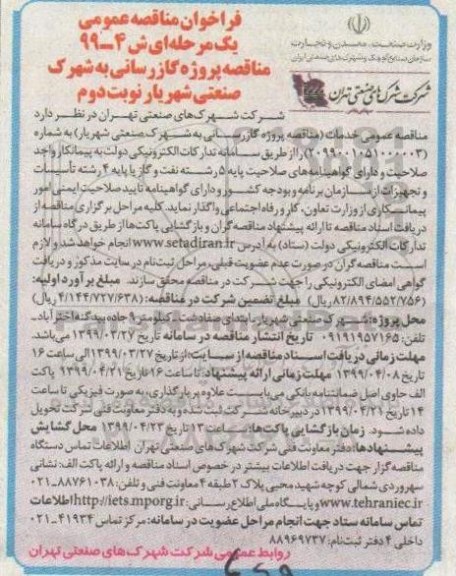 فراخوان مناقصه عمومی
یک مرحله‌ای ش ۴-۹۹
مناقصه پروژه گازرسانی به شهرک
صنعتی شهریار نوبت دوم
وزارت صنعت، معدن و تجارت
سازمان صنایع کوچک و شهرک‌های صنعتی ایران
شرکت شهرک‌های صنعتی تهران
شرکت شهرک‌های صنعتی تهران در نظر دارد
مناقصه عمومی خدمات (مناقصه پروژه گازرسانی به شهرک صنعتی شهریار) به شماره
(۲۰۹۹۰۰۱۰۵۱۰۰۰۰۰۳) را از طریق سامانه تدارکات الکترونیکی دولت به پیمانکار واجد
صلاحیت و دارای گواهینامه‌های صلاحیت پایه ۵ رشته نفت و گاز یا پایه ۴ رشته تأسیسات
و تجهیزات از سازمان برنامه و بودجه کشور و دارای گواهینامه تایید صلاحیت ایمنی امور
پیمانکاری از وزارت تعاون، کار و رفاه اجتماعی واگذار نماید. کلیه مراحل برگزاری مناقصه از
دریافت اسناد مناقصه تا ارائه پیشنهاد مناقصه گران و بازگشایی پاکت‌ها از طریق درگاه سامانه
تدارکات الکترونیکی دولت (ستاد) به آدرس www.setadiran.ir انجام خواهد شد و لازم
است مناقصه گران در صورت عدم عضویت قبلی، مراحل ثبت‌نام در سایت مذکور و دریافت
گواهی امضای الکترونیکی را جهت شرکت در مناقصه محقق سازند. مبلغ برآورد اولیه:
(۸۲/۸۹۴/۵۵۲/۷۵۶ ریال) مبلغ تضمین شرکت در مناقصه: (۴/۱۴۴/۷۲۷/۶۳۸ ریال)
محل پروژه: شهرک صنعتی شهریار ابتدای صفادشت کیلومتر ۹ جاده بیدگنه اختر آباد.
تلفن: ۰۹۱۹۱۹۵۷۱۶۵ تاریخ انتشار مناقصه در سامانه تاریخ ۱۳۹۹/۰۳/۲۷ می‌باشد.
مهلت زمانی دریافت اسناد مناقصه از سایت: از تاریخ ۱۳۹۹/۰۳/۲۷ الی ساعت ۱۶
تاریخ ۱۳۹۹/۰۴/۰۸ مهلت زمانی ارائه پیشنهاد: تا ساعت ۱۶ تاریخ ۱۳۹۹/۰۴/۲۱ پاکت
الف حاوی اصل ضمانتنامه بانکی می‌بایست علاوه بر بارگذاری، به صورت فیزیکی تا ساعت
۱۴ تاریخ ۱۳۹۹/۰۴/۲۱ در دبیرخانه شرکت ثبت شده و به دفتر معاونت فنی شرکت تحویل
داده شود. زمان بازگشایی پاکت‌ها: ساعت ۱۳ تاریخ ۱۳۹۹/۰۴/۲۳ محل گشایش
پیشنهادها: دفتر معاونت فنی شرکت شهرک‌های صنعتی تهران اطلاعات تماس دستگاه
مناقصه گزار جهت دریافت اطلاعات بیشتر در خصوص اسناد مناقصه و ارائه پاکت الف: نشانی
سهروردی شمالی کوچه شهید محبی پلاک ۲ طبقه ۴ معاونت فنی و تلفن: ۸۸۷۶۱۰۳۸-۰۲۱
www.tehraniec.ir و پایگاه ملی اطلاع رسانی: http://iets.mporg.ir اطلاعات
تماس سامانه ستاد جهت انجام مراحل عضویت در سامانه: مرکز تماس ۴۱۹۳۴-۰۲۱
داخلی ۴ دفتر ثبت نام: ۸۸۹۶۹۷۳۷
روابط عمومی شرکت شهرک‌های صنعتی تهران